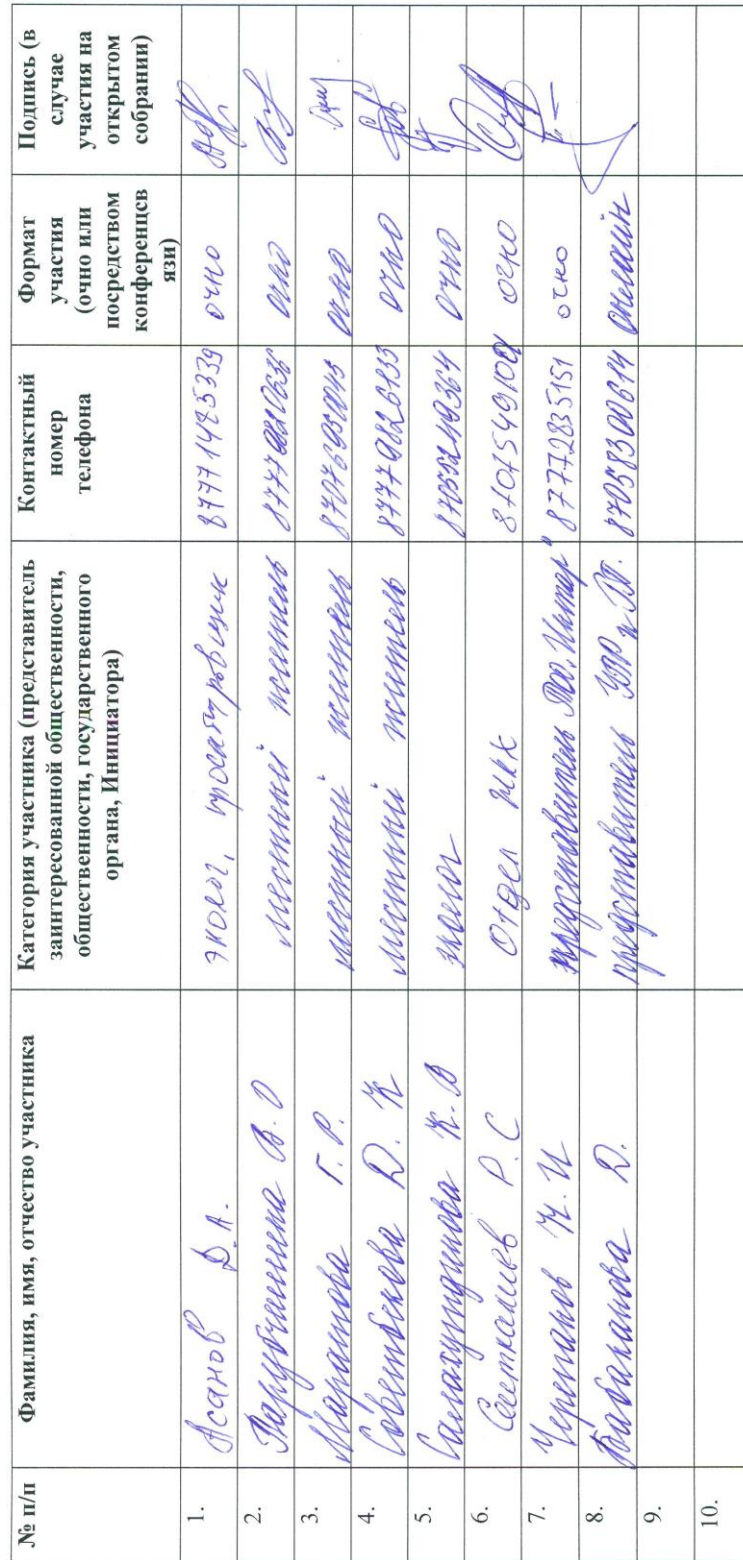 № п/п
Фамилия, имя, отчество участника
Категория участника (представитель
заинтересованной общественности,
общественности, государственного
органа, Инициатора)
Контактный
номер
телефона
Формат
участия
(очно или
посредством
конференцсв
язи)
Подпись (в
случае
участия на
открытом
собрании)
1. Асанов Д.А. эколог, 87771475339 очно
2. В.О местный житель очно
3. Маратова Г.Р. местный житель очно
4. Советбекова Д.К местный житель 87779826133 очно
5. Салахутдинова К.В эколог 87055249364 очно
6. Сеиткалиев Р.С Отдел ЖКХ очно
7. Черепанов К.И представитель 87772835151 очно
8. Бабаканова Д. представитель 87058300614 онлайн
9.
10.